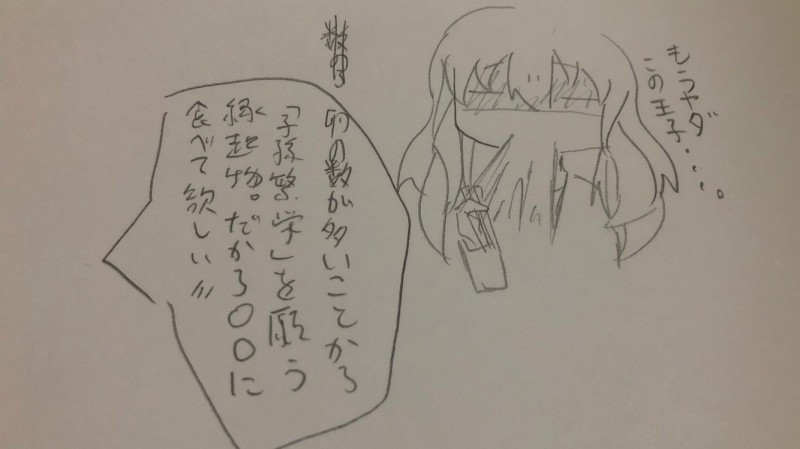 もうヤダ
この王子・・・。
卵の数が多いことから
「子孫繁栄」を願う
縁起物。だから〇〇に
食べて欲しい!!